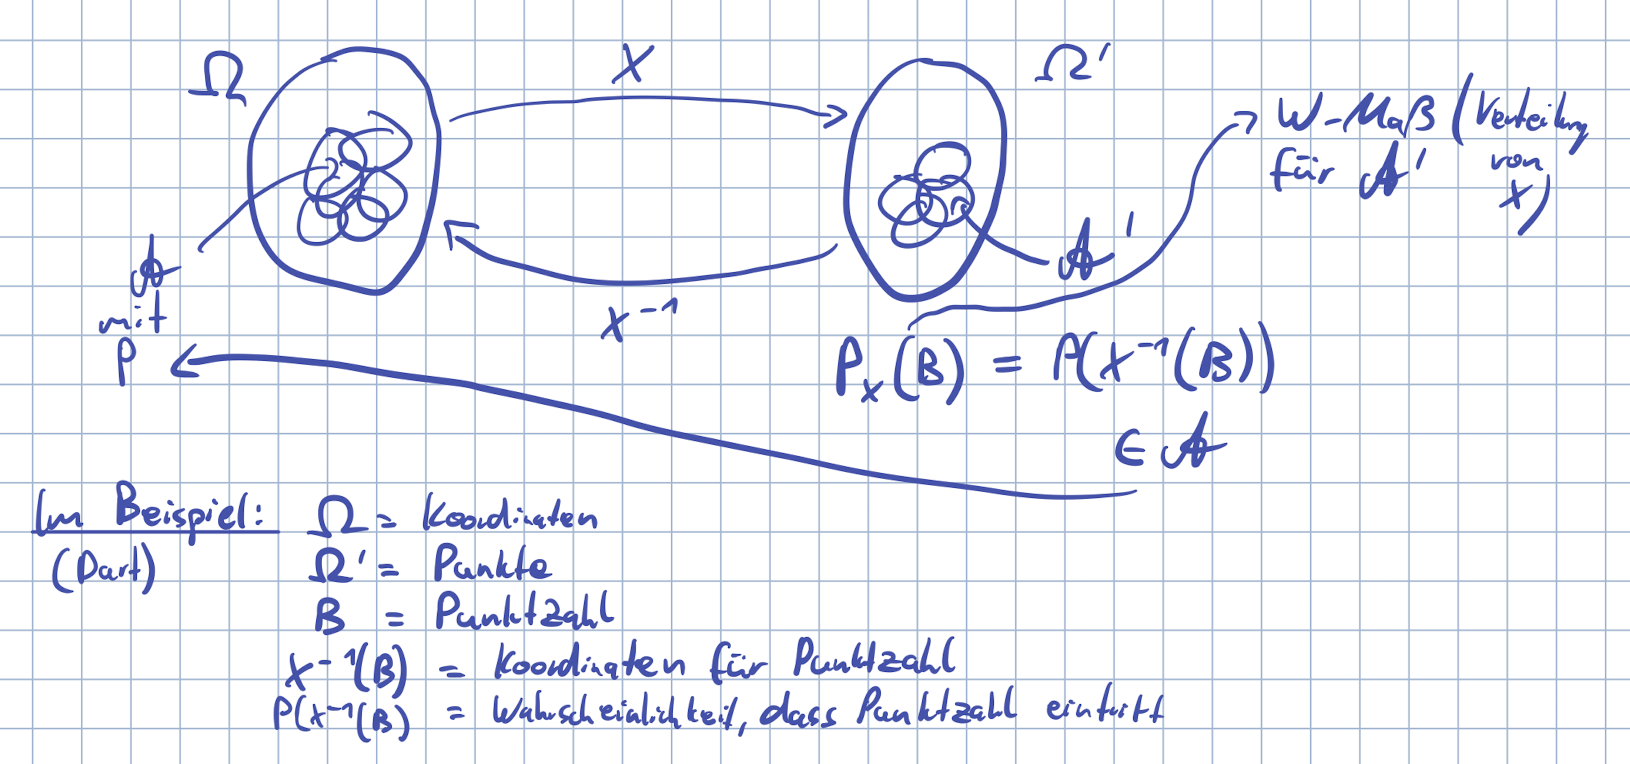 Ω
X
Ω'
W-Maß (Verteilung von X)
für 𝒜'
𝒜
mit
P
X⁻¹
𝒜'
Pₓ(B) = P(X⁻¹(B))
∈ 𝒜
Im Beispiel:
(Dart)
Ω = Koordinaten
Ω' = Punkte
B = Punktzahl
X⁻¹(B) = Koordinaten für Punktzahl
P(X⁻¹(B) = Wahrscheinlichkeit, dass Punktzahl eintritt